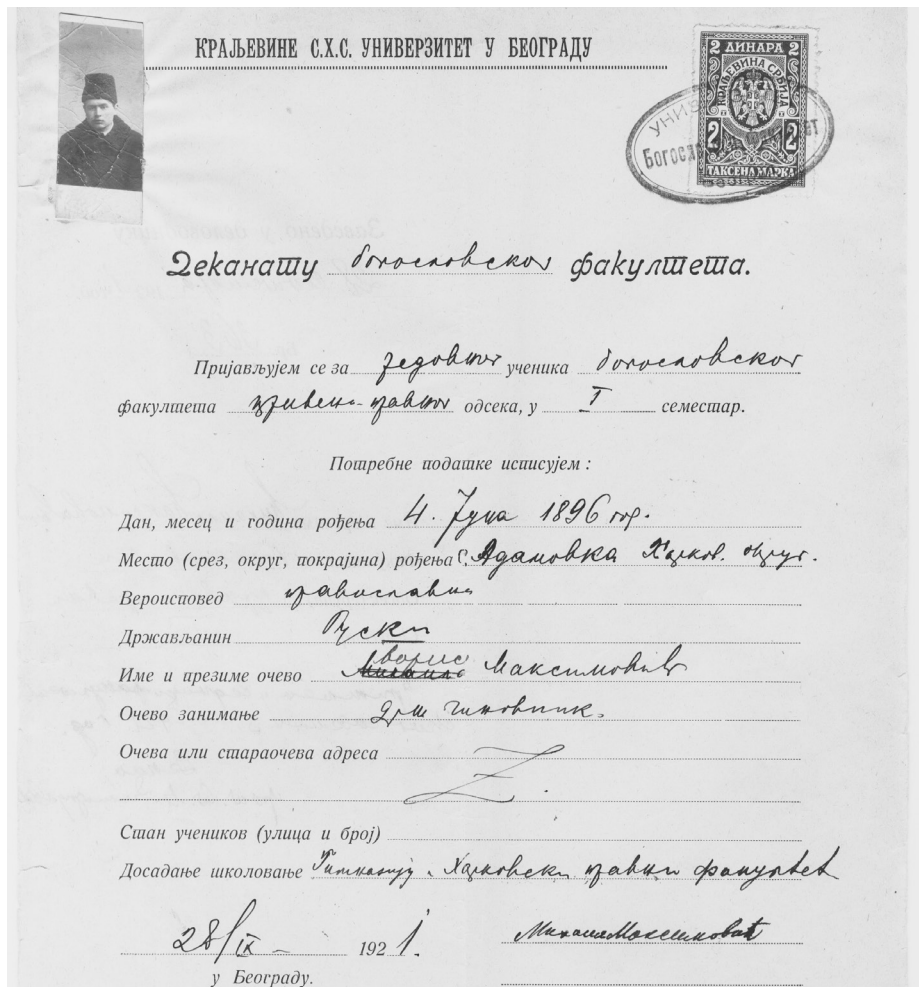 КРАЉЕВИНЕ С.Х.С. УНИВЕРЗИТЕТ У БЕОГРАДУ
2 ДИНАРА 2
КРАЉЕВИНА СРБИЈА
2 2
ТАКСЕНА МАРКА
Деканату богословског факултета.
Пријављујем се за редовног ученика богословског
факултета црквено-правног одсека, у I семестар.
Потребне податке исписујем :
Дан, месец и година рођења 4. Јуна 1896 год.
Место (срез, округ, покрајина) рођења С. Адамовка Харков. округ.
Вероисповед православна
Држављанин Руски
Име и презиме очево Борис Максимовић
Очево занимање држ чиновник.
Очева или стараочева адреса
Стан учеников (улица и број)
Досадање школовање Гимназију и Харковски правни факултет
28/IX 1921.
Михаил Максимовић
у Београду.